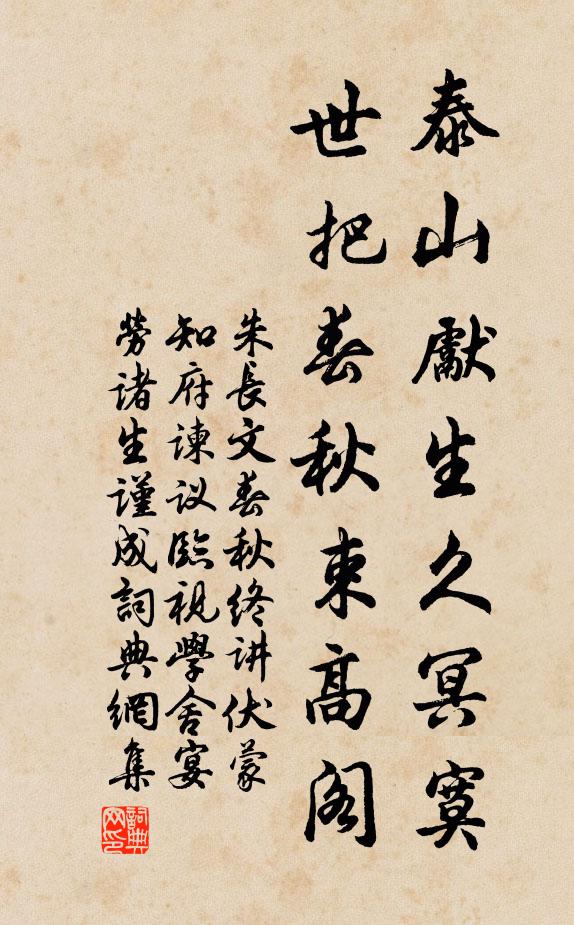 泰山獻生久冥寞
世把春秋束高阁
朱長文春秋终讲伏蒙
知府谏议臨視學舍宴
勞诸生谨成詞典網集
詞典网印